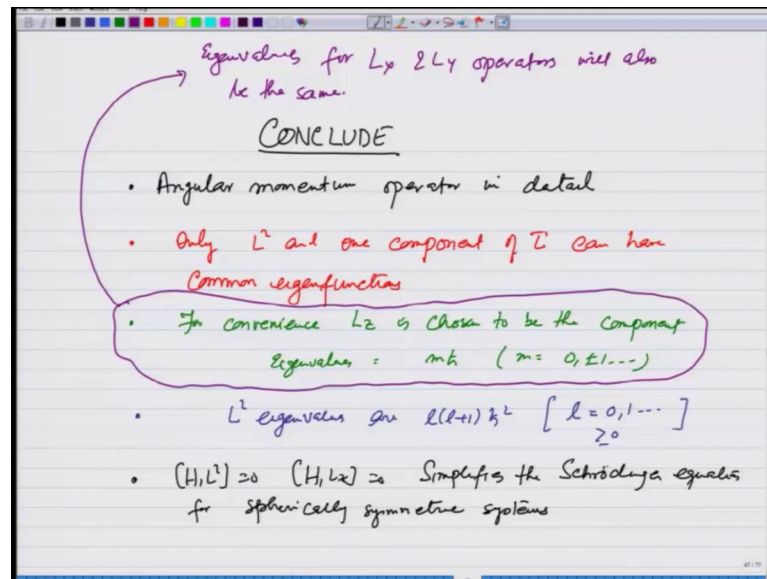 Eigenvalues for Lx & Ly operators will also
be the same.
CONCLUDE
• Angular momentum operator in detail
• Only L² and one component of L⃗ can have
Common eigenfunctions
• For convenience Lz is chosen to be the component
Eigenvalues = mℏ (m = 0, ±1---)
• L² eigenvalues are l(l+1)ℏ² [l = 0,1---]
≥0
• [H,L²]=0 [H,Lz]=0 Simplifies the Schrödinger equation
for spherically symmetric systems
47/77